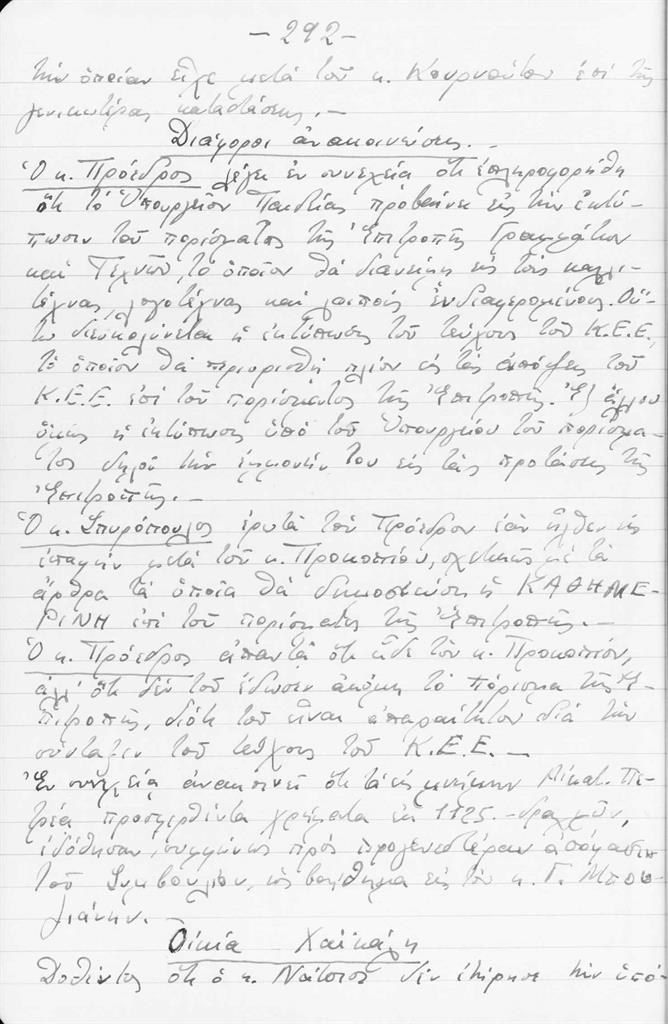 - 292 -
τὴν ὁποίαν εἶχε μετά τοῦ κ. Κουρνούτου ἐπί τῆς
γενικωτέρας καταστάσεως. -
Διάφοροι ἀνακοινώσεις. -
Ὁ κ. Πρόεδρος λέγει ἐν συνεχείᾳ ὅτι ἐπληροφορήθη
ὅτι τό Ὑπουργεῖον Παιδείας προβαίνει εἰς τήν ἐκτύ-
πωσιν τοῦ πορίσματος τῆς Ἐπιτροπῆς Γραμμάτων
καί Τεχνῶν, τό ὁποῖον θά διανείμῃ εἰς τούς καλλι-
τέχνας, λογοτέχνας καί λοιπούς ἐνδιαφερομένους. Οὕ-
τω διευκολύνεται ἡ ἐκτύπωσις τοῦ τεύχους τοῦ Κ.Ε.Ε.,
τό ὁποῖον θά περιορισθῇ πλέον εἰς τάς ἀπόψεις τοῦ
Κ.Ε.Ε. ἐπί τοῦ πορίσματος τῆς Ἐπιτροπῆς. Ἐξ ἄλλου
ὅμως ἡ ἐκτύπωσις ὑπό τοῦ Ὑπουργείου τοῦ πορίσμα-
τος δηλοῖ τήν ἐμμονήν του εἰς τάς προτάσεις τῆς
Ἐπιτροπῆς. -
Ὁ κ. Σπυρόπουλος ἐρωτᾷ τόν Πρόεδρον ἐάν ἦλθεν εἰς
ἐπαφήν μετά τοῦ κ. Προκοπίου, σχετικῶς μέ τά
ἄρθρα τά ὁποῖα θά δημοσιεύσῃ ἡ ΚΑΘΗΜΕ-
ΡΙΝΗ ἐπί τοῦ πορίσματος τῆς Ἐπιτροπῆς. -
Ὁ κ. Πρόεδρος ἀπαντᾷ ὅτι εἶδε τόν κ. Προκοπίου,
ἀλλ' ὅτι δέν τοῦ ἔδωσεν ἀκόμη τό πόρισμα τῆς Ἐ-
πιτροπῆς, διότι τοῦ εἶναι ἀπαραίτητον διά τήν
σύνταξιν τοῦ τεύχους τοῦ Κ.Ε.Ε. -
Ἐν συνεχείᾳ ἀνακοινεῖ ὅτι τά εἰς μνήμην Αἰκατ. Πε-
τρέα προσφερθέντα χρήματα ἐκ 1125.- δραχμῶν,
ἐδόθησαν, συμφώνως πρός προγενεστέραν ἀπόφασιν
τοῦ Συμβουλίου, ὡς βοήθημα εἰς τόν κ. Γ. Μπου-
ζιάνην. -
Οἰκία Χαϊκάλη
Δοθέντος ὅτι ὁ κ. Νάτσιος δέν ἐτήρησε τήν ὑπό-